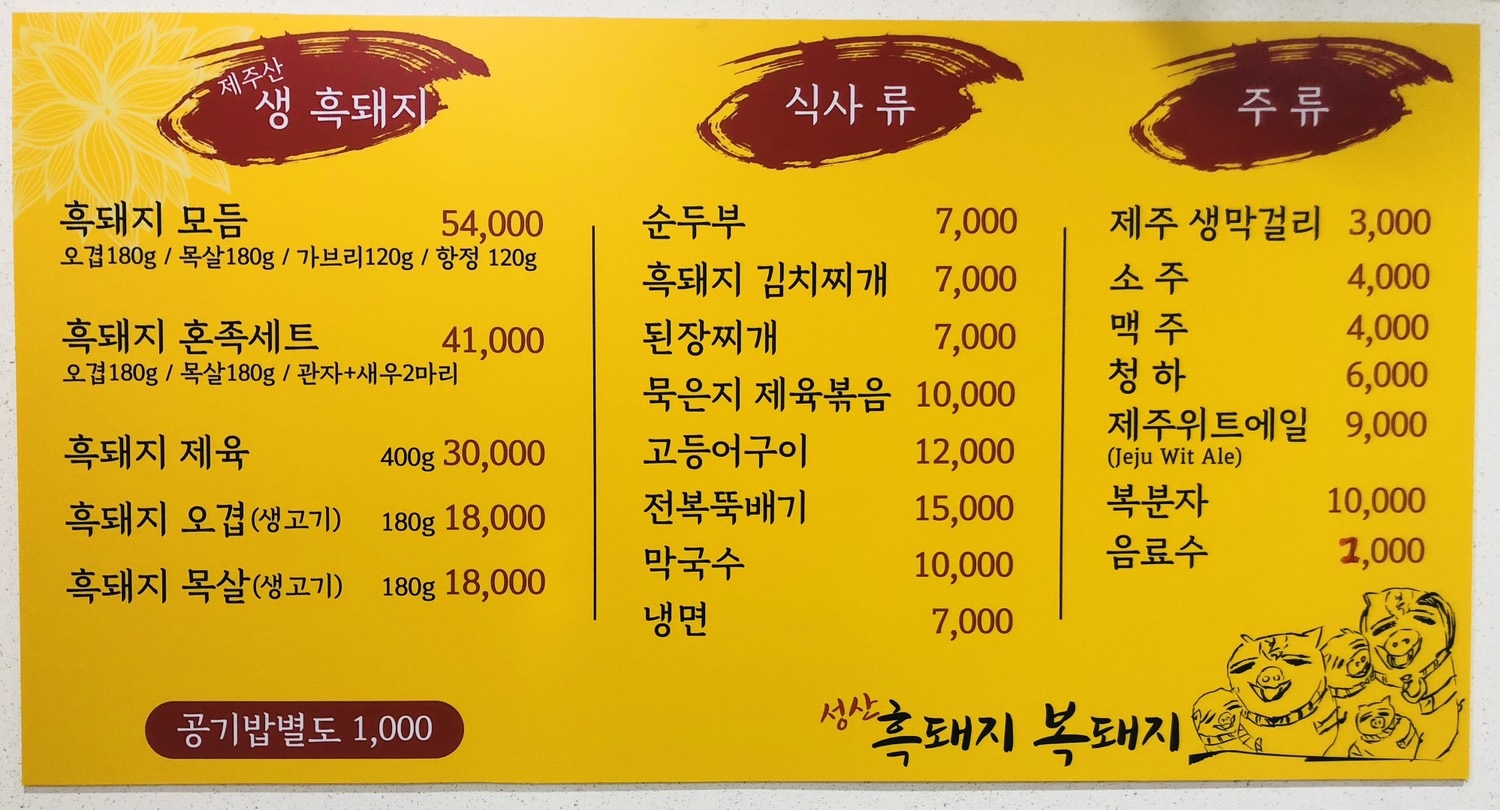 제주산
생 흑돼지
흑돼지 모듬 54,000
오겹180g / 목살180g / 가브리120g / 항정 120g
흑돼지 혼족세트 41,000
오겹180g / 목살180g / 관자+새우2마리
흑돼지 제육 400g 30,000
흑돼지 오겹(생고기) 180g 18,000
흑돼지 목살(생고기) 180g 18,000
공기밥별도 1,000
식사 류
순두부 7,000
흑돼지 김치찌개 7,000
된장찌개 7,000
묵은지 제육볶음 10,000
고등어구이 12,000
전복뚝배기 15,000
막국수 10,000
냉면 7,000
주 류
제주 생막걸리 3,000
소 주 4,000
맥 주 4,000
청 하 6,000
제주위트에일 9,000
(Jeju Wit Ale)
복분자 10,000
음료수
성산
흑돼지 복돼지